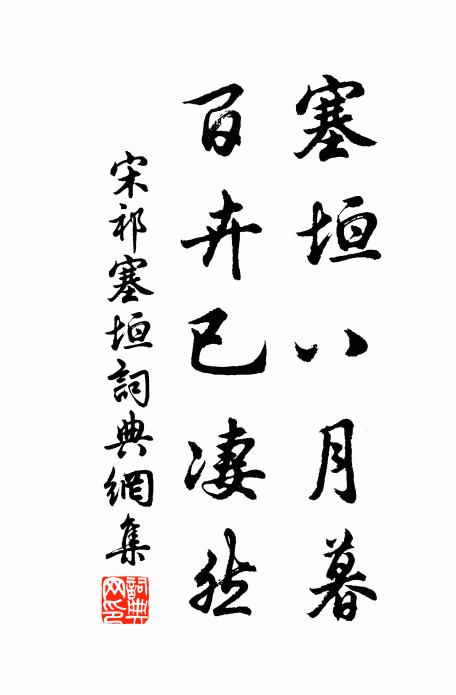 塞垣八月暮
百卉已凄然
宋祁塞垣詞典網集
詞典網印